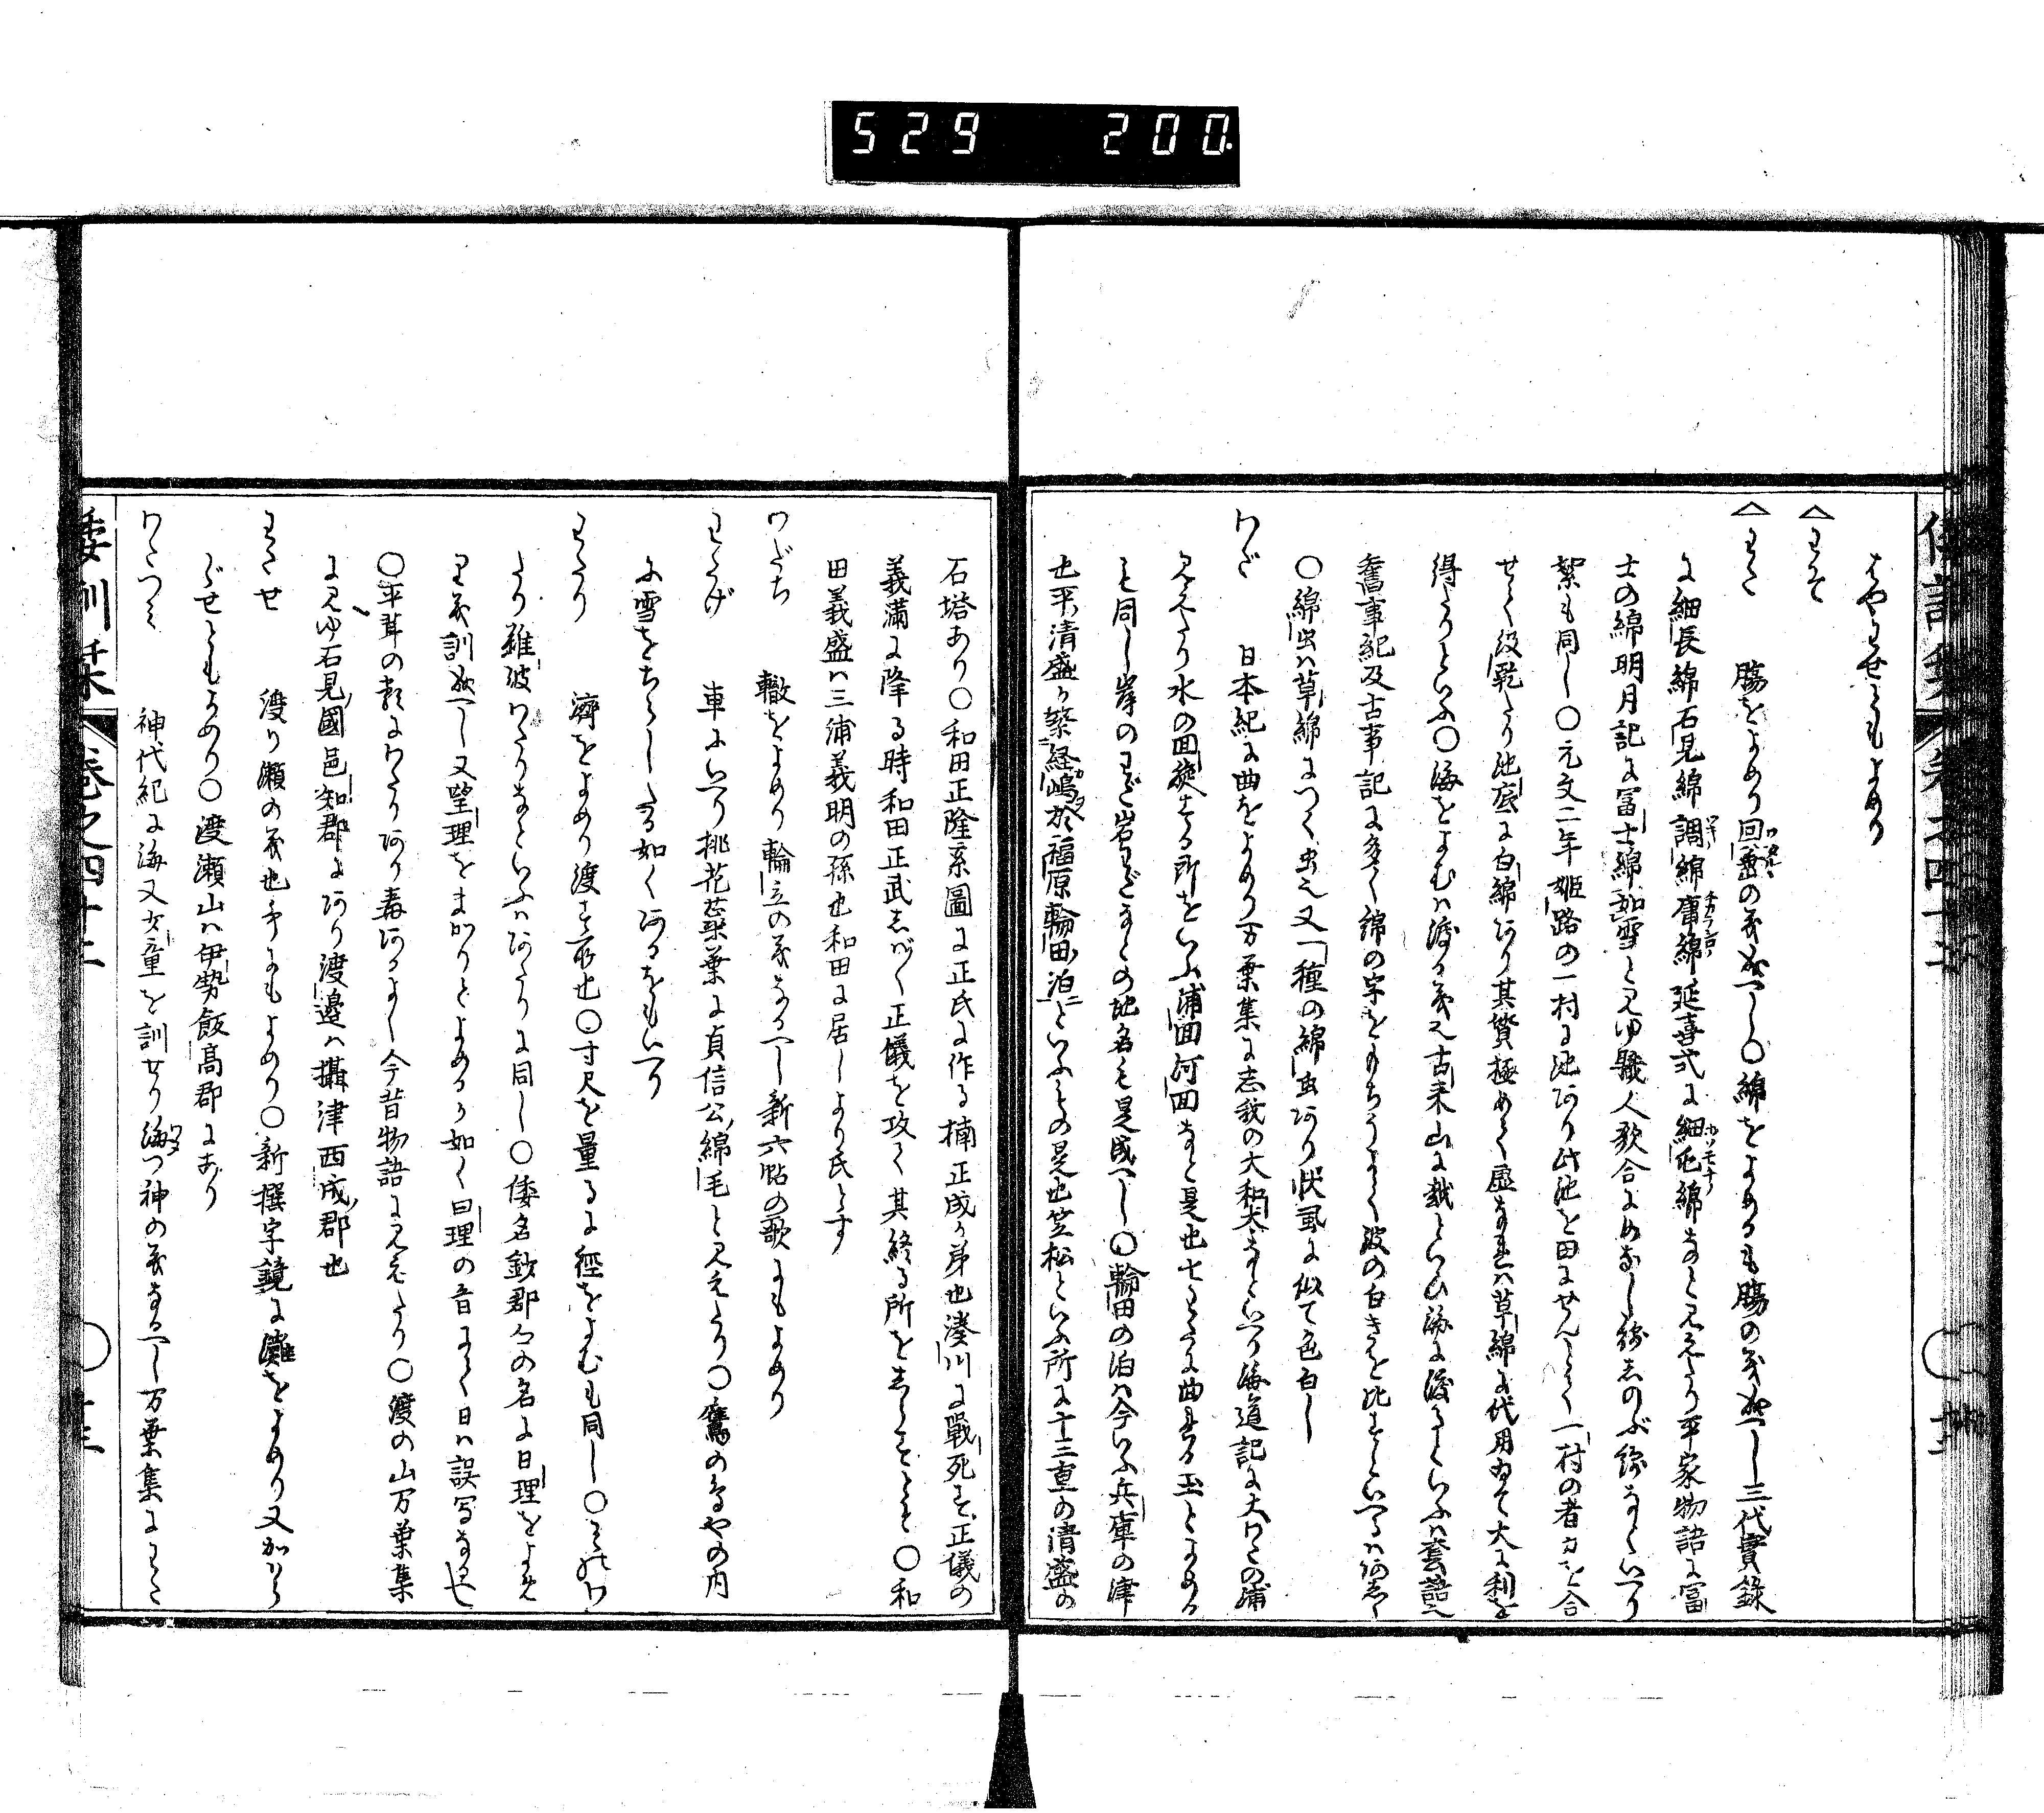 529 200.
はやわせともよめり
△わそ
△わた 腸をよめり回垂の義成へし〇綿をよめるも腸の義成へし三代實錄
に細長綿石見綿調綿庸綿延喜式に細屯綿なと見えたり平家物語に富
士の綿明月記に富士綿如雪と見ゆ職人歌合にめなし綿しのふ綿なといへり
絮も同し〇元文二年姫路の一村に池あり此池を田にせんとて一村の者力を合
せて汲乾たり池底に白綿あり其質極めて虚なれは草綿に代用ゐて大に利を
得たりといふ〇海をよむは渡る義也古来山に越といひ海に渡るといふは套語也
舊事紀及古事記に多く綿の字をもちうよて波の白きを比すといへるはあしく
〇綿虫は草綿につく虫也又一種の綿虫あり状虱に似て色白し
わだ 日本紀に曲をよめり万葉集に志我の大和太なといへり海道記に大わたの浦
見えたり水の回旋する所をいふ浦回河回なと是也七わたに曲れる玉とよめる
も同し岸のわだ岩わだなとの地名も是成へし〇輪田の泊は今いふ兵庫の津
也平清盛か築経嶋於福原輪田泊といふもの是也笠松といふ所に十三重の清盛の
石塔あり〇和田正隆系圖に正氏に作る楠正成か弟也湊川に戰死す正儀の
義滿に降る時和田正武しばしく正儀を攻て其終る所をしらすとそ〇和
田義盛は三浦義明の孫也和田に居しより氏とす
わだち 轍をよめり輪立の義なるへし新六帖の歌にもよめり
わたげ 車にいへり桃花蘂葉に貞信公綿毛と見えたり〇鷹のとやの内
に雪をちらしたる如くあるをもいへり
わたり 濟をよめり渡す所也〇寸尺を量るに徑をよむも同し〇そのわ
たり難波わたりなといふはあたりに同し〇倭名鈔郡名の名に日理をよめ
り義訓成へし又望理をまかりとよめるか如く曰理の音にて日は誤写なるへし
〇平茸の類にわたりあり毒あるよし今昔物語に見えたり〇渡の山万葉集
に見ゆ石見國邑知郡にあり渡邊は攝津西成郡也
わたせ 渡り瀬の義也歌にもよめり〇新撰字鏡に灘をよめり又かはら
ぐせともよめり〇渡瀬山は伊勢飯高郡にあり
わたつみ 神代紀に海又少童を訓せり海つ神の義なるへし万葉集にわた
倭訓栞 巻之四十二 〇 十三